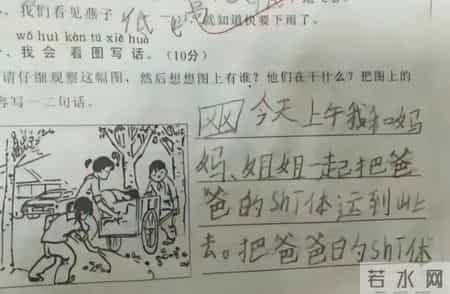 、我们看见燕子 低飞 就知道快要下雨了。
wǒ huì kàn tú xiě huà
、我 会 看 图 写 话。(10分)
请仔细观察这幅图，然后想想图上有谁？他们在干什么？把图上的
容写一二句话。
今天上午我和妈
妈、姐姐一起把爸
爸的shī体运到山上
去。把爸爸的shī体
若水网